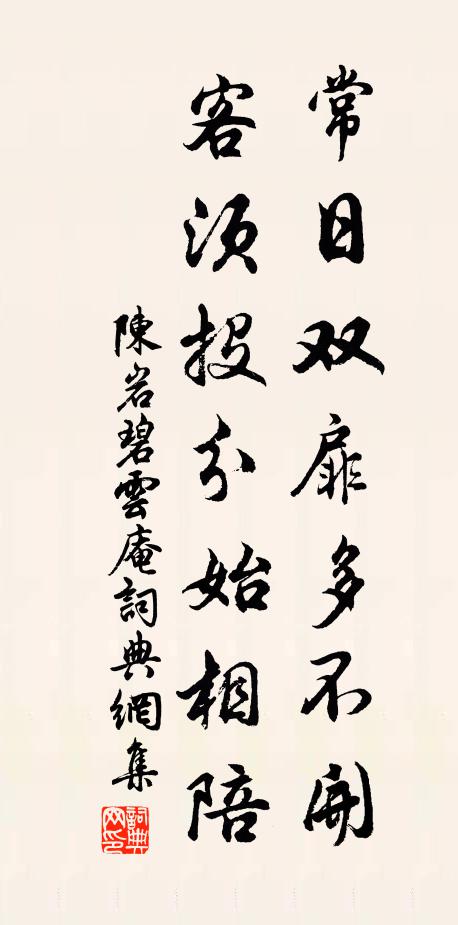 常日双扉多不開
客须投分始相陪
陳岩碧雲庵詞典網集
詞典网印